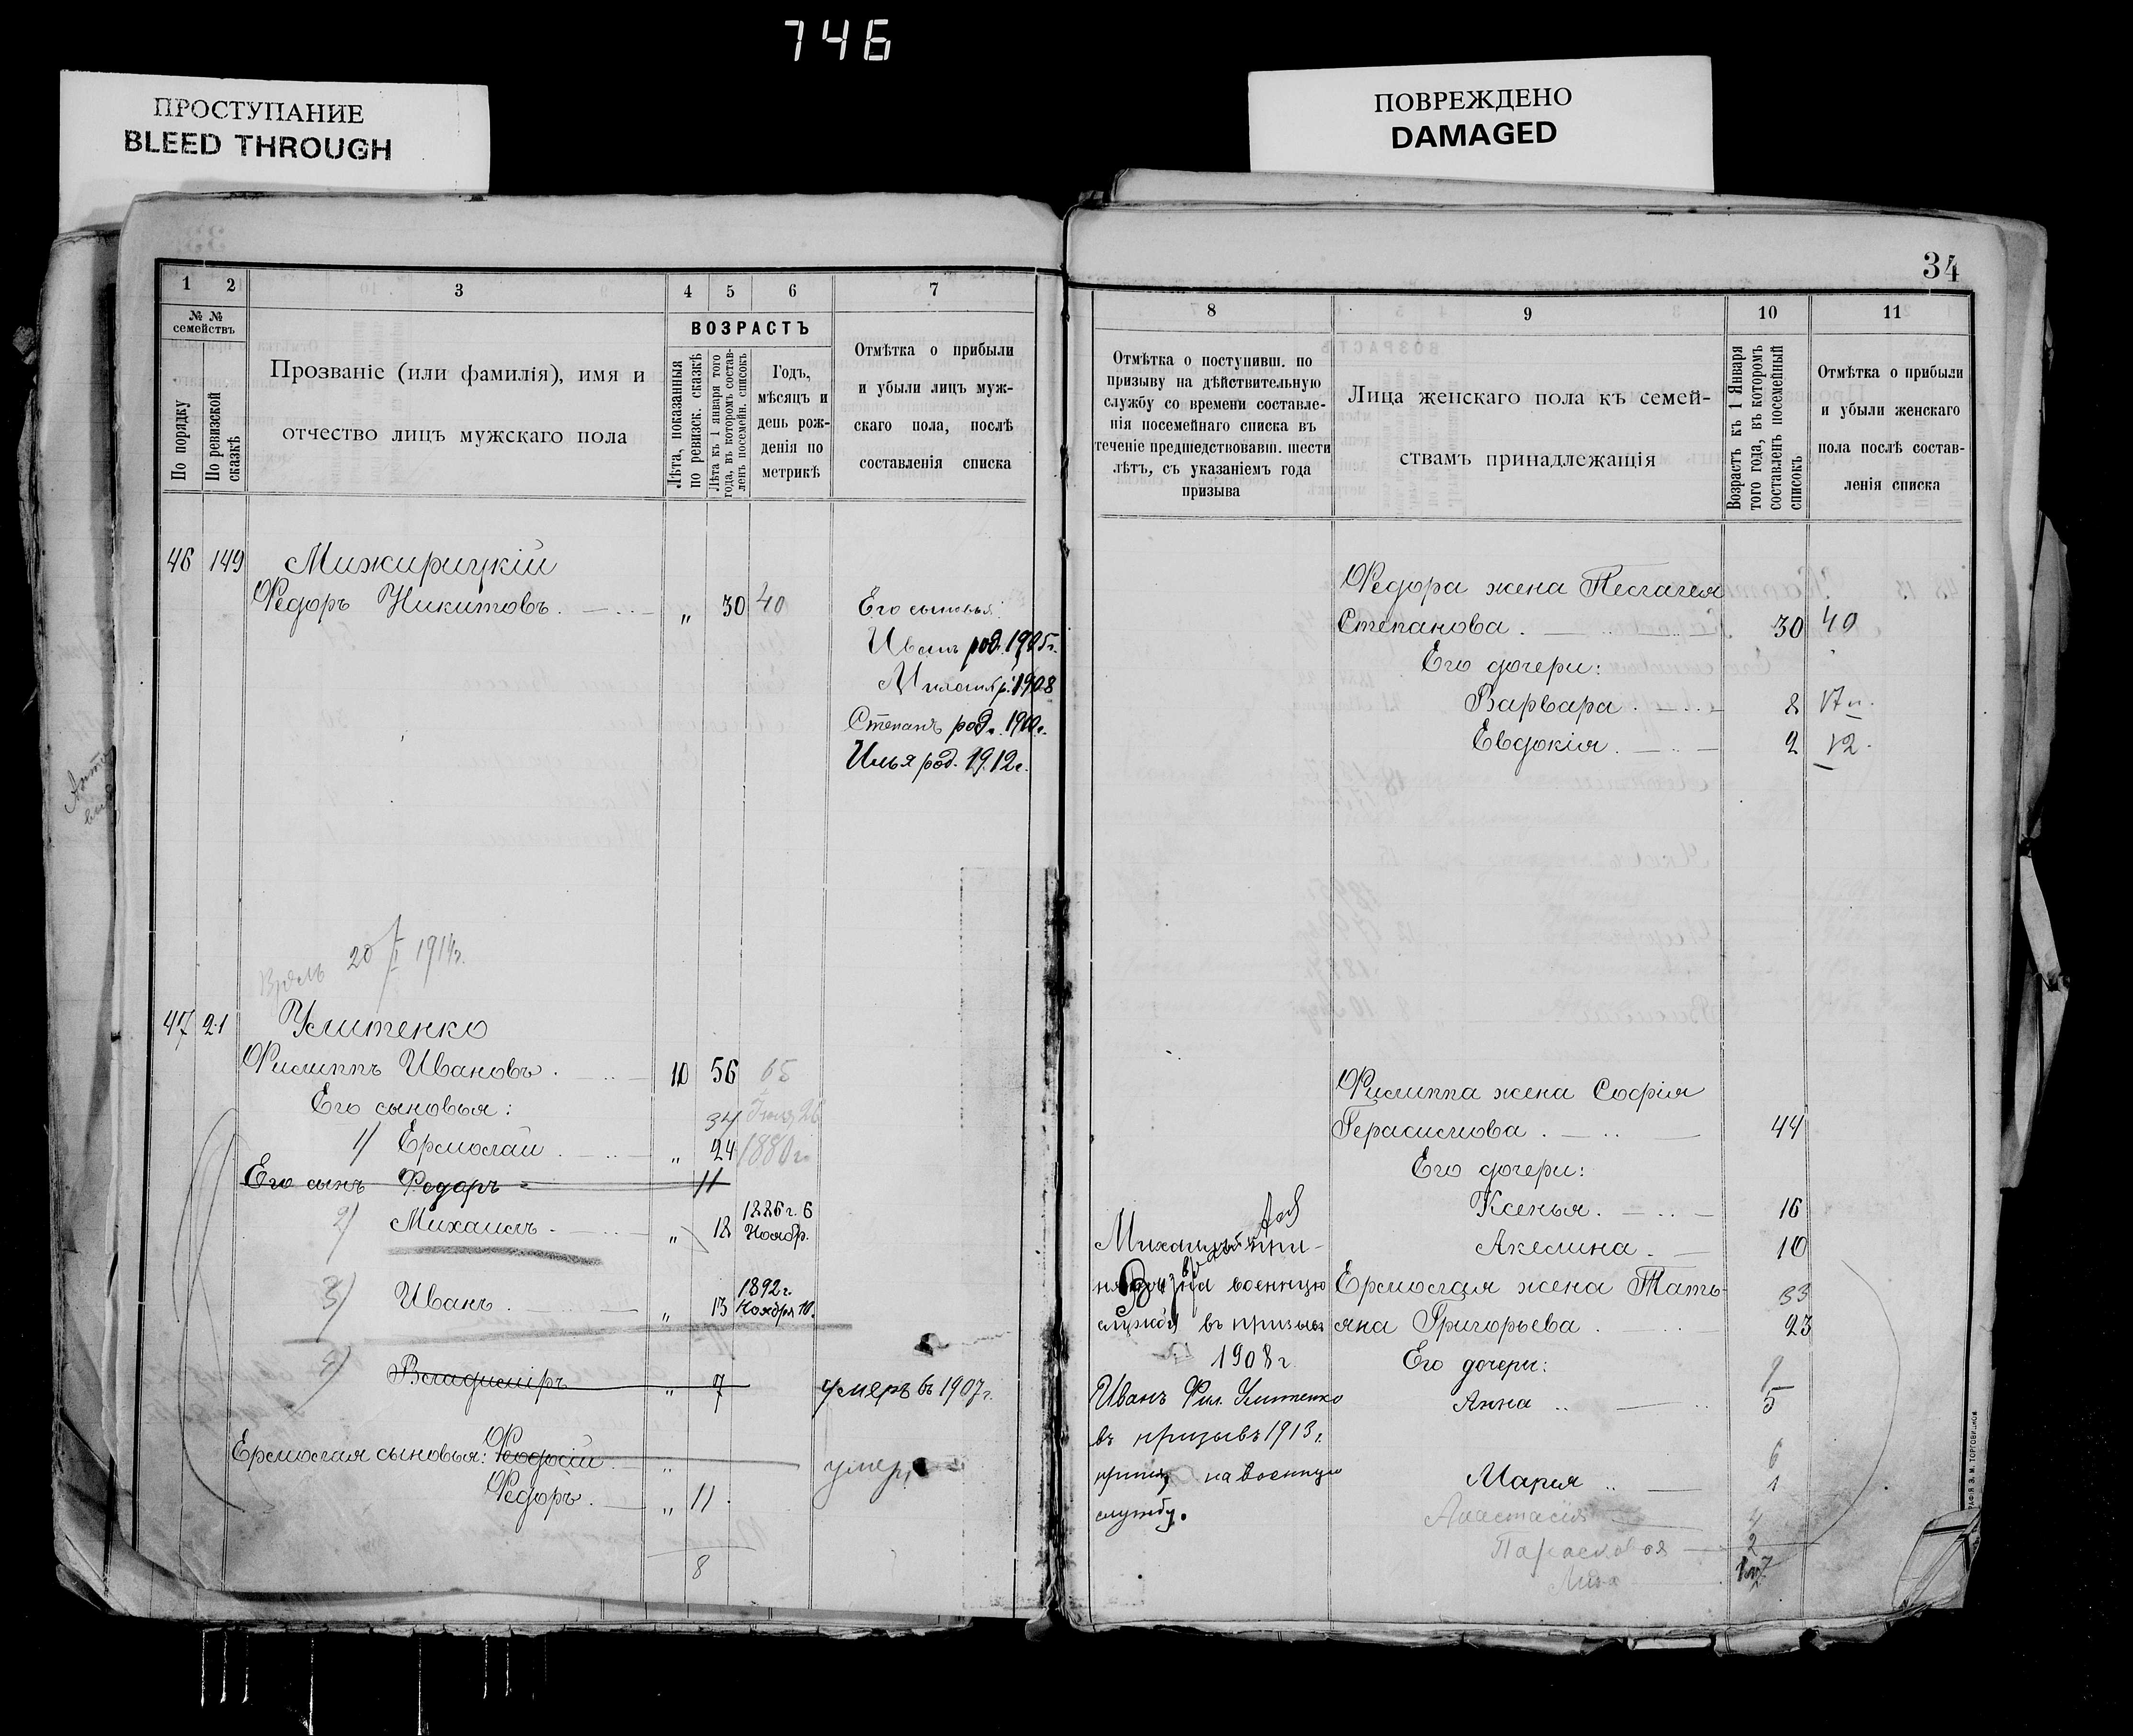 746
ПРОСТУПАНИЕ
BLEED THROUGH
ПОВРЕЖДЕНО
DAMAGED
34
1 2 3 4 5 6 7
№ № семействъ
По порядку
По ревизской сказкѣ
Прозваніе (или фамилія), имя и
отчество лицъ мужскаго пола
ВОЗРАСТЪ
Лѣта, показанныя
по ревизск. сказкѣ
Лѣта къ 1 января того
года, въ которомъ состав-
ленъ посемейн. списокъ
Годъ,
мѣсяцъ и
день рож-
денія по
метрикѣ
Отмѣтка о прибыли
и убыли лицъ муж-
скаго пола, послѣ
составленія списка
46 149 Мижирицкій
Федоръ Никитовъ. „ 30 40
Его сыновья:
Иванъ род. 1905г.
р. 1908
Степанъ род. 1910г.
Илья род. 1912г.
20 1914г.
47 21 Улитенко
Филиппъ Ивановъ. 10 56 65
Его сыновья: 34
1) Ермолай „ 24 1880г.
Его сынъ Федоръ 11
2) Михаилъ „ 18 1886г. 6 Ноябр.
3) Иванъ „ 13 1892г. Ноября 10.
Владиміръ „ 7 умеръ въ 1907г.
Ермолая сыновья: „ умеръ
Федоръ. „ 11
8
8 9 10 11
Отмѣтка о поступивш. по
призыву на дѣйствительную
службу со времени составле-
нія посемейнаго списка въ
теченіе предшедствовавш. шести
лѣтъ, съ указаніемъ года
призыва
Лица женскаго пола къ семей-
ствамъ принадлежащія
Возрастъ къ 1 Января
того года, въ которомъ
составленъ посемейный
списокъ
Отмѣтка о прибыли
и убыли женскаго
пола послѣ состав-
ленія списка
Федора жена Пелагея
Степанова. 30 40
Его дочери:
Варвара 8
Евдокія. 2 12
Филиппа жена Софія
Герасимова. 44
Его дочери:
Ксенья. 16
Акелина. 10
Ермолая жена Тать- 33
яна Григорьева 23
Его дочери: 9
Анна 5
6
Марія 1
Анастасія 4
Парасковія 2
Михаилъ при-
на военную
службу въ призывъ
1908г
Иванъ Фил. Улитенко
въ призывъ 1913г.
принятъ на военную
службу.